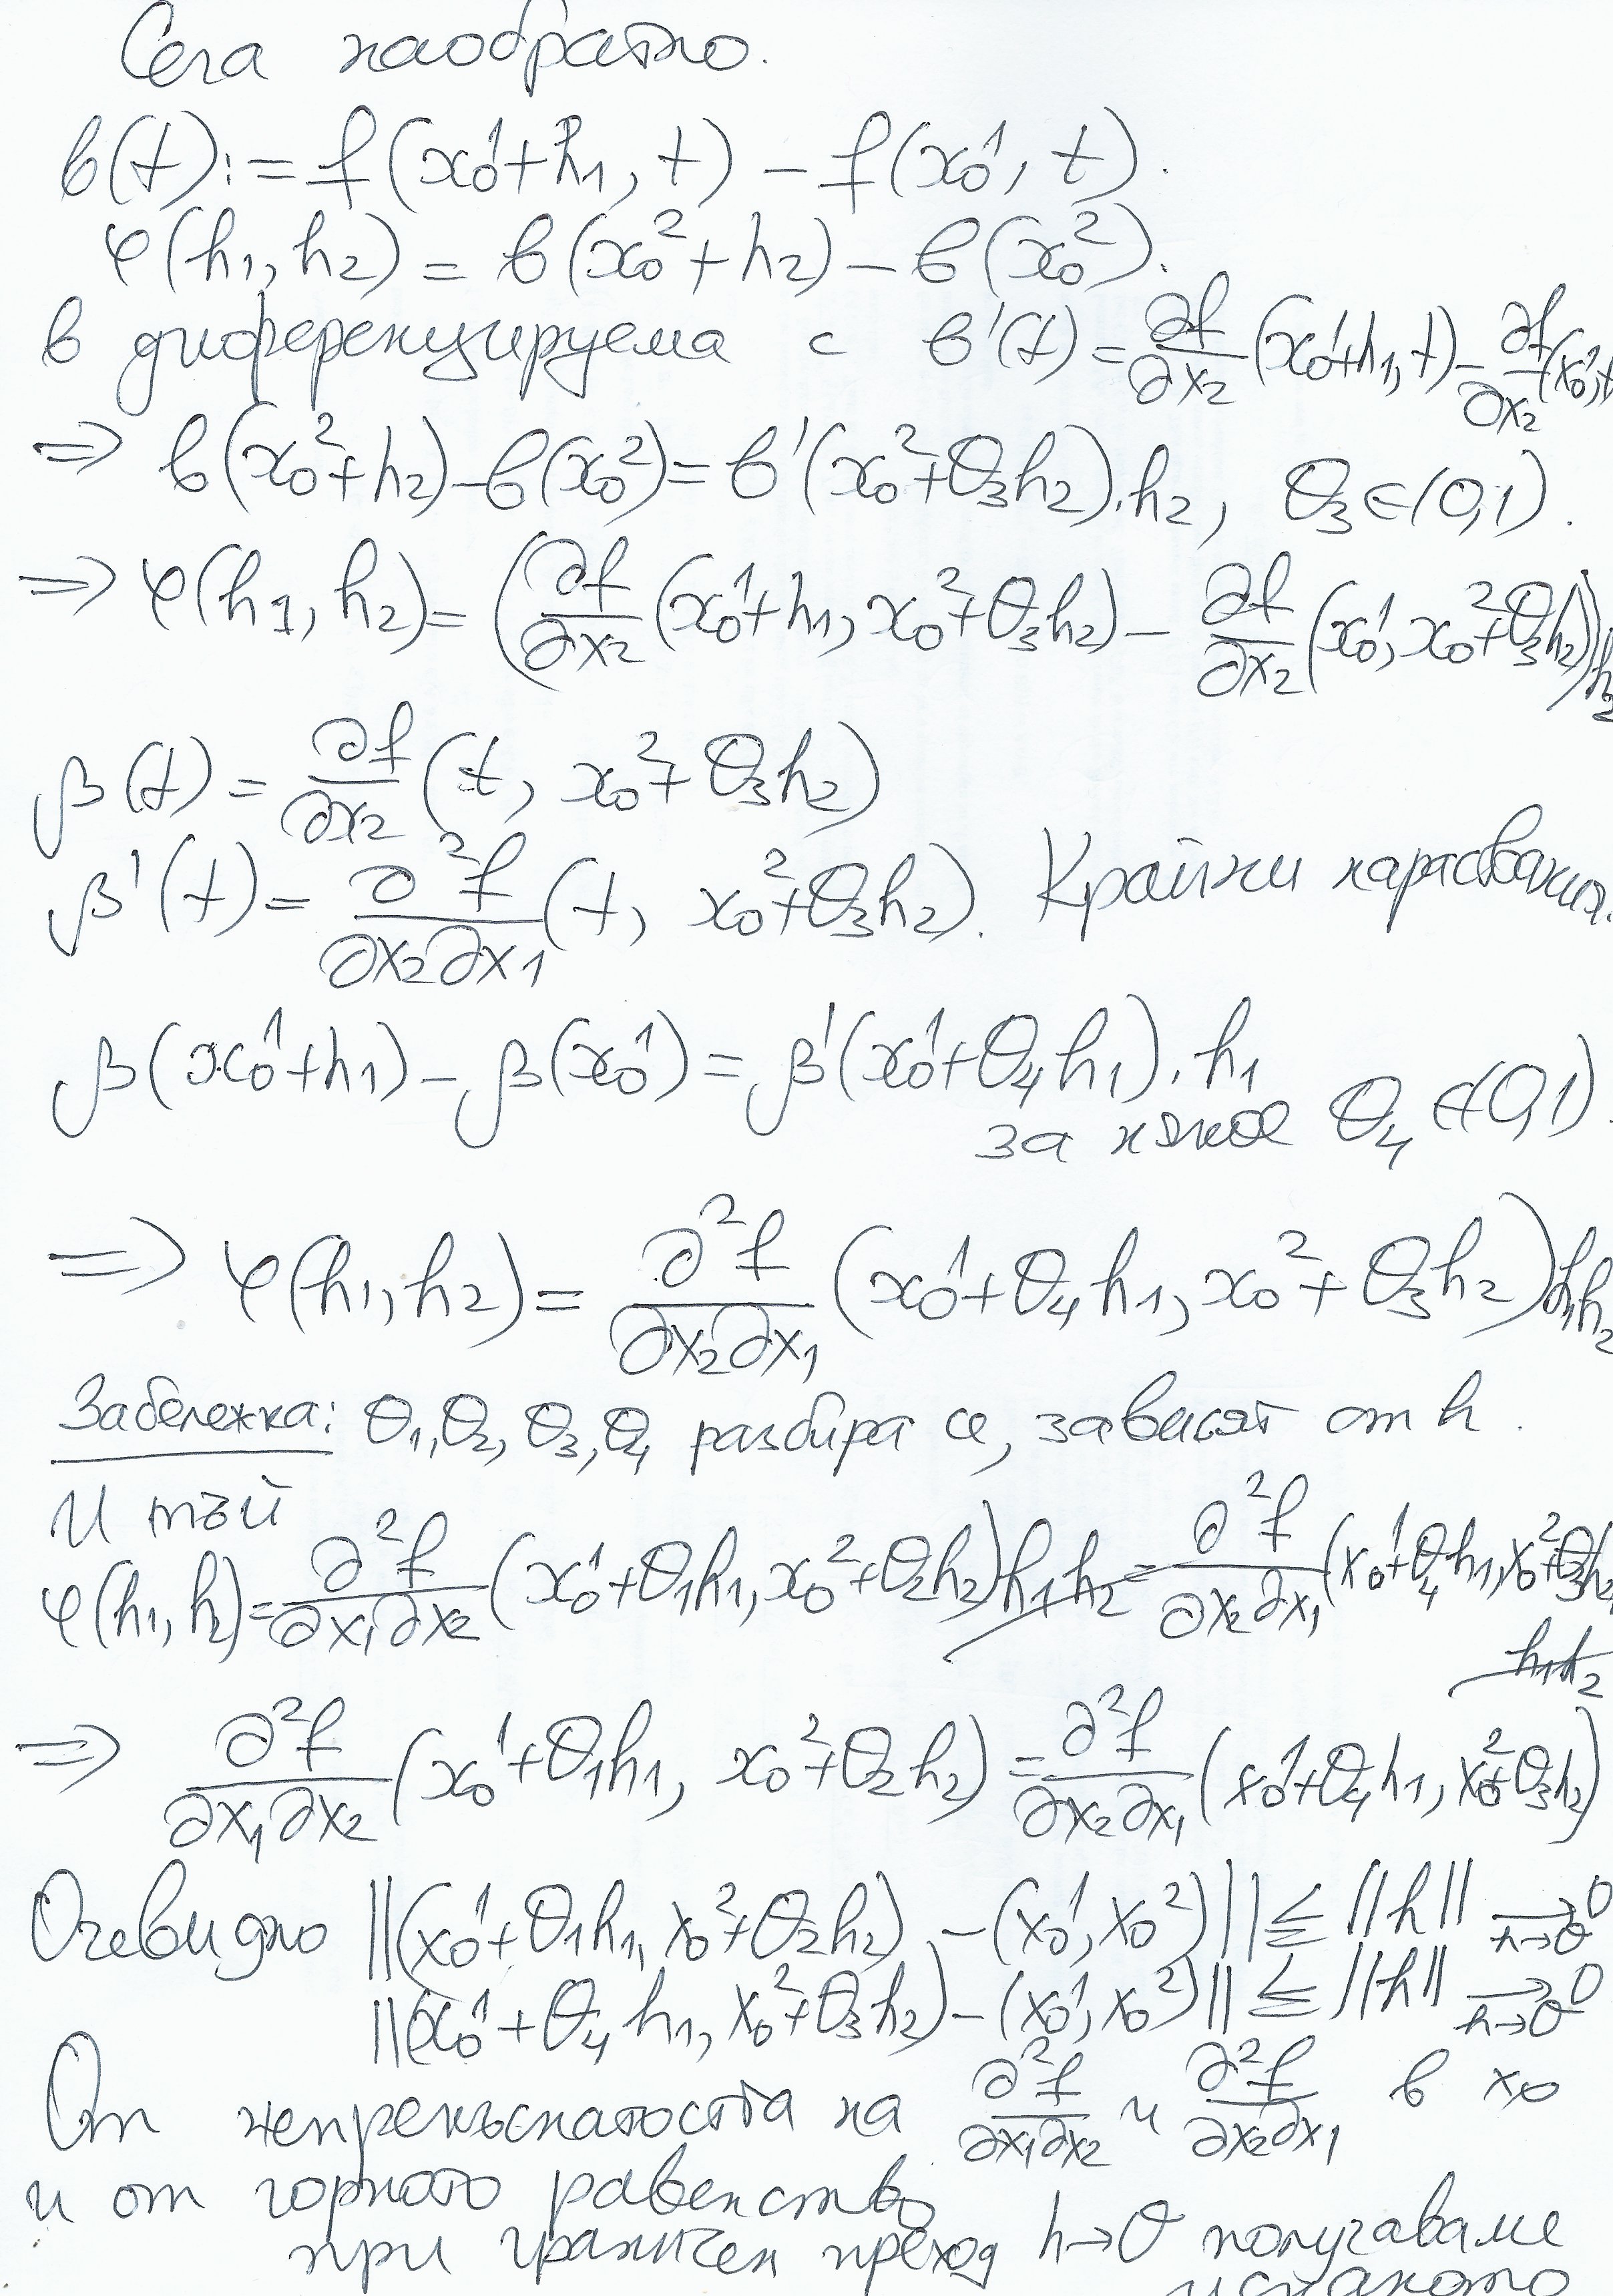 Сега наобратно.
в(t) := f(x₀¹+h₁, t) − f(x₀¹, t).
φ(h₁, h₂) = в(x₀²+h₂) − в(x₀²).
в диференцируема с в'(t) = ∂f/∂x₂ (x₀¹+h₁, t) − ∂f/∂x₂ (x₀¹, t
⇒ в(x₀²+h₂) − в(x₀²) = в'(x₀²+θ₃h₂).h₂, θ₃ ∈ (0,1).
⇒ φ(h₁, h₂) = (∂f/∂x₂ (x₀¹+h₁, x₀²+θ₃h₂) − ∂f/∂x₂ (x₀¹, x₀²+θ₃h₂))h₂
β(t) = ∂f/∂x₂ (t, x₀²+θ₃h₂)
β'(t) = ∂²f/∂x₂∂x₁ (t, x₀²+θ₃h₂). Крайни нараствания.
β(x₀¹+h₁) − β(x₀¹) = β'(x₀¹+θ₄h₁).h₁
за някое θ₄ ∈ (0,1)
⇒ φ(h₁, h₂) = ∂²f/∂x₂∂x₁ (x₀¹+θ₄h₁, x₀²+θ₃h₂)h₁h₂
Забележка: θ₁, θ₂, θ₃, θ₄ разбира се, зависят от h.
И тъй
φ(h₁, h₂) = ∂²f/∂x₁∂x₂ (x₀¹+θ₁h₁, x₀²+θ₂h₂)h₁h₂ = ∂²f/∂x₂∂x₁ (x₀¹+θ₄h₁, x₀²+θ₃h₂)
h₁h₂
⇒ ∂²f/∂x₁∂x₂ (x₀¹+θ₁h₁, x₀²+θ₂h₂) = ∂²f/∂x₂∂x₁ (x₀¹+θ₄h₁, x₀²+θ₃h₂)
Очевидно ||(x₀¹+θ₁h₁, x₀²+θ₂h₂) − (x₀¹, x₀²)|| ≤ ||h|| →_{h→0} 0
||(x₀¹+θ₄h₁, x₀²+θ₃h₂) − (x₀¹, x₀²)|| ≤ ||h|| →_{h→0} 0
От непрекъснатостта на ∂²f/∂x₁∂x₂ и ∂²f/∂x₂∂x₁ в x₀
и от горното равенство
при граничен преход h→0 получаваме
исканото